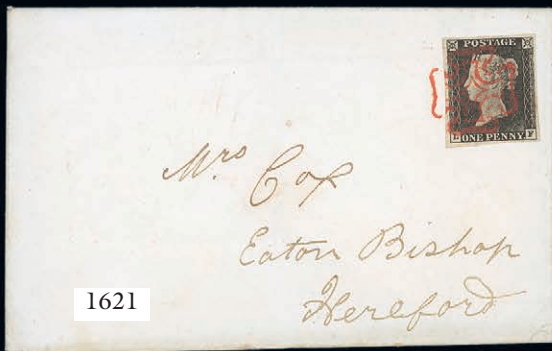 POSTAGE
ONE PENNY
F
Mrs Cox
Eaton Bishop
Hereford
1621